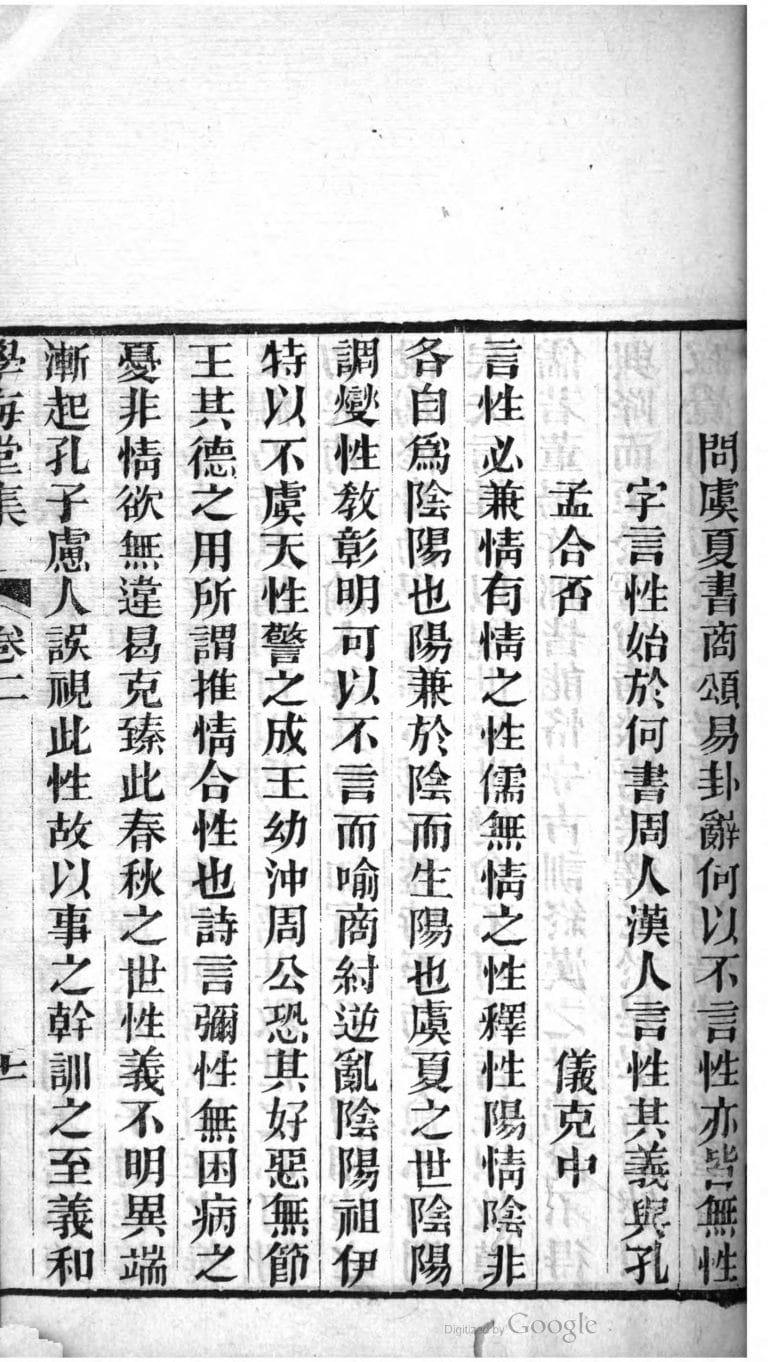 問虞夏書商頌易卦辭何以不言性亦皆無性
字言性始於何書周人漢人言性其義與孔
孟合否 儀克中
言性必兼情有情之性儒無情之性釋性陽情陰非
各自爲陰陽也陽兼於陰而生陽也虞夏之世陰陽
調燮性教彰明可以不言而喻商紂逆亂陰陽祖伊
特以不虞天性警之成王幼沖周公恐其好惡無節
王其德之用所謂推情合性也詩言彌性無困病之
憂非情欲無違曷克臻此春秋之世性義不明異端
漸起孔子慮人誤視此性故以事之幹訓之至義和
學海堂集 卷二
Digitized by Google